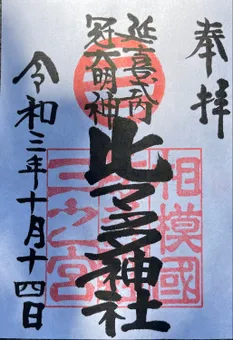 奉拝
延喜式内
冠大明神
比々多神社
令和三年十月十四日
相模國
三之宮